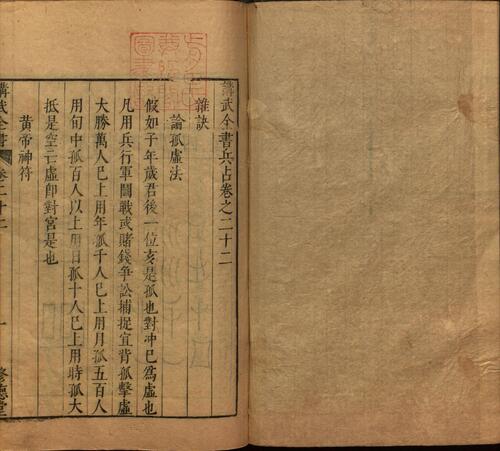 講武全書兵占卷之二十二
雜訣
論孤虛法
假如子年歲君後一位亥是孤也對冲巳為虛也
凡用兵行軍鬪戰或賭錢爭訟捕捉宜背孤擊虛
大勝萬人巳上用年孤千人巳上用月孤五百人
用旬中孤百人以上用日孤十人巳上用時孤大
抵是空亡虛即對宮是也
黃帝神符
講武全書 卷二十二 一 修德堂